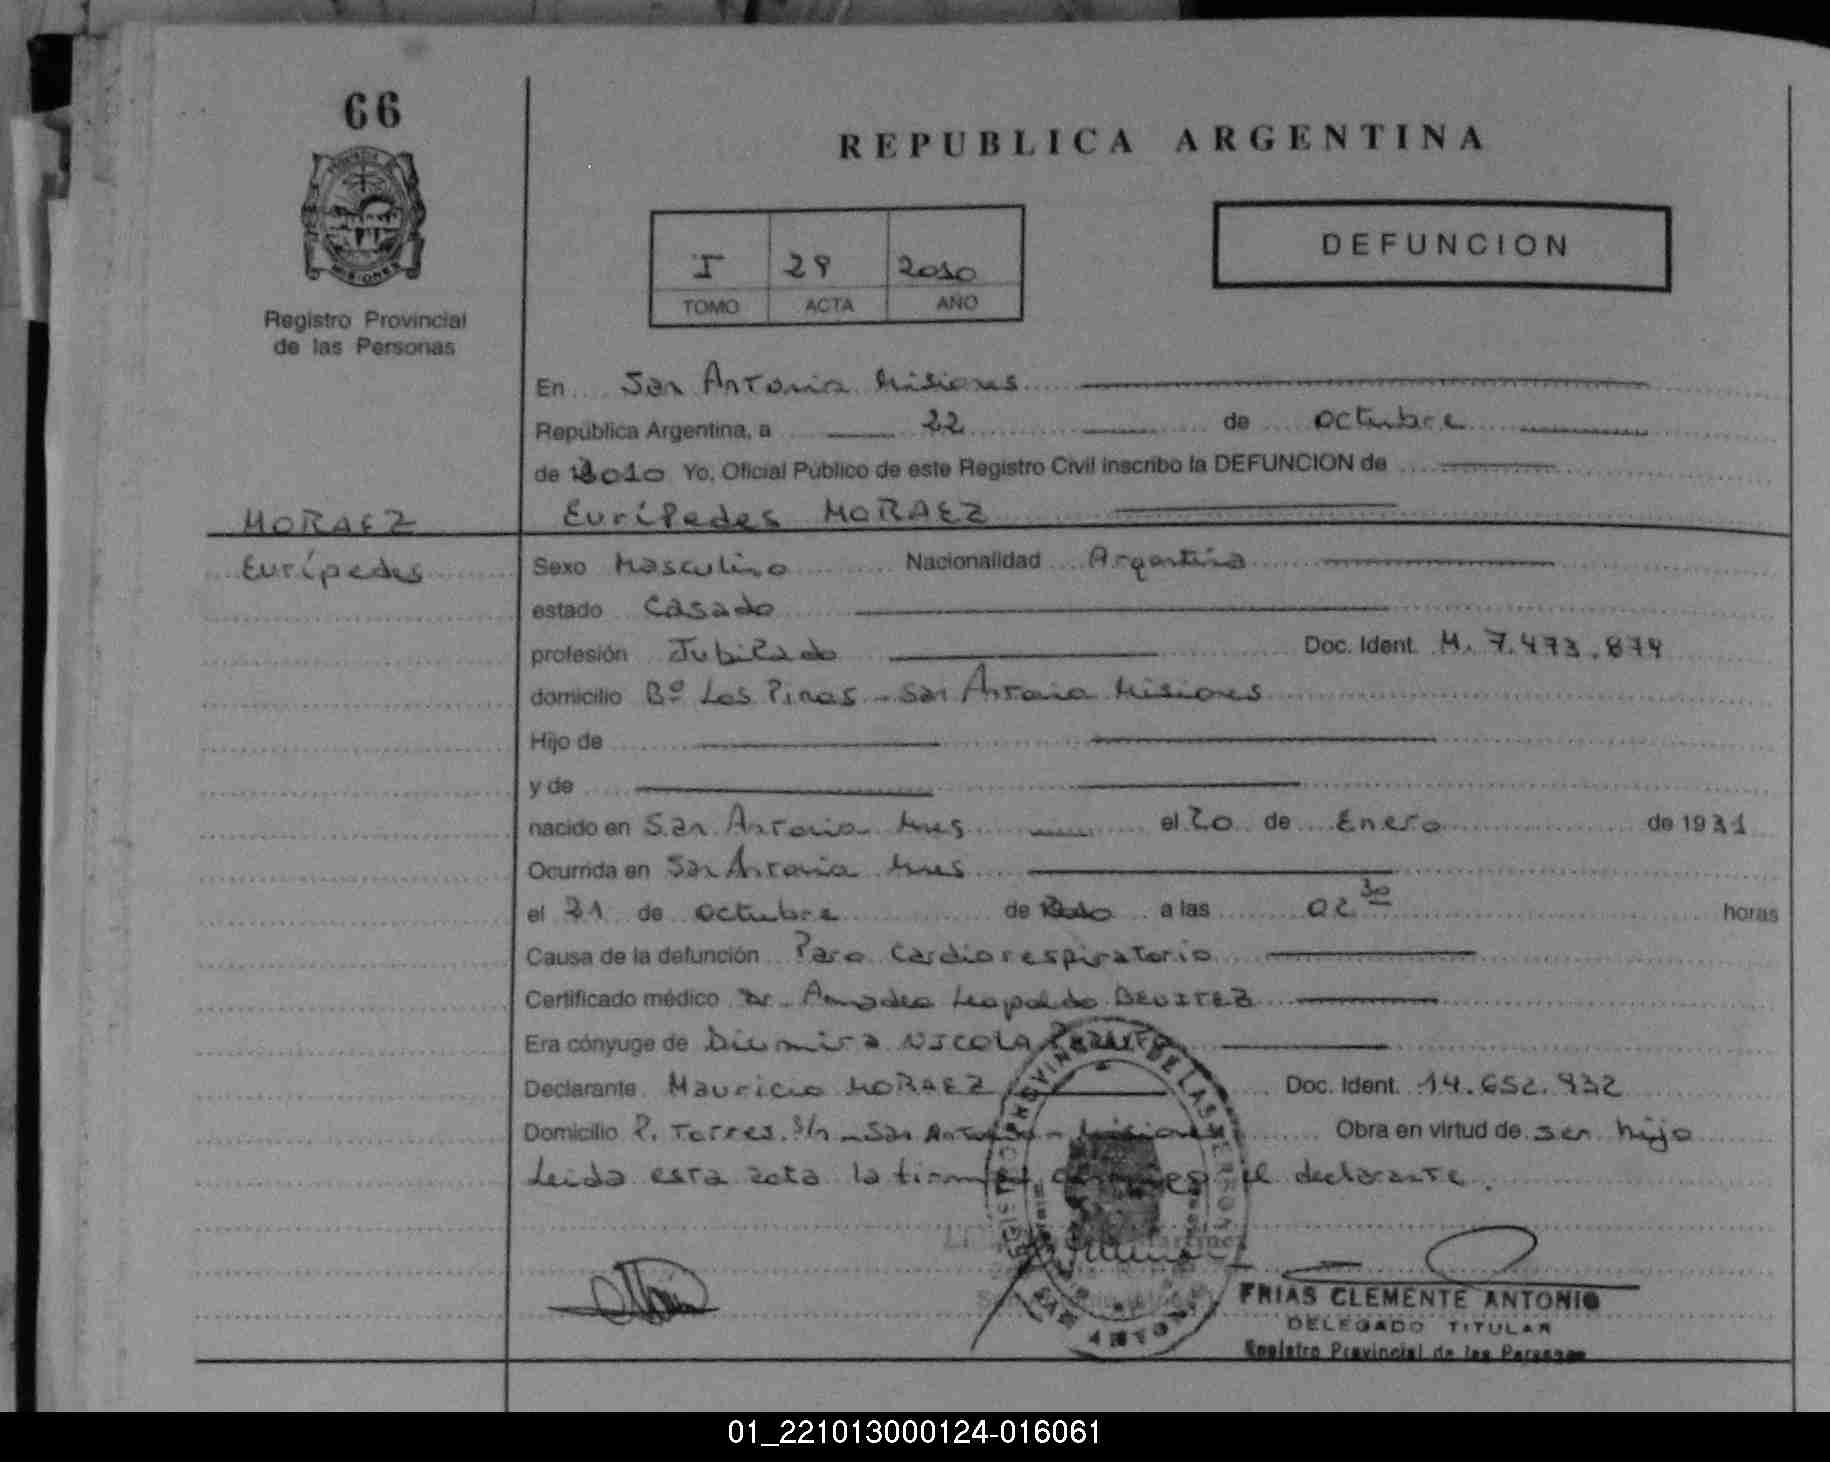 66
REPUBLICA ARGENTINA
MISIONES
Registro Provincial
de las Personas
I 29 2010
TOMO ACTA AÑO
DEFUNCION
En San Antonio Misiones
República Argentina, a 22 de octubre
de 2010 Yo, Oficial Público de este Registro Civil inscribo la DEFUNCION de
MORAEZ
Eurípedes
Eurípedes MORAEZ
Sexo Masculino Nacionalidad Argentina
estado Casado
profesión Jubilado Doc. Ident. M. 7.473.874
domicilio Bº Los Pinos - San Antonio Misiones
Hijo de
y de
nacido en San Antonio Mnes el 20 de Enero de 1931
Ocurrida en San Antonio Mnes
el 21 de octubre de 2010 a las 02 30 horas
Causa de la defunción Paro Cardiorespiratorio
Certificado médico Dr. Amadeo Leopoldo BENITEZ
Era cónyuge de NICOLA
Declarante Mauricio MORAEZ Doc. Ident. 14.652.932
Domicilio P. Torres S/n - San Antonio - Misiones Obra en virtud de ser hijo
Leida esta acta la firman el declarante.
FRIAS CLEMENTE ANTONIO
DELEGADO TITULAR
Registro Provincial de las Personas
01_221013000124-016061